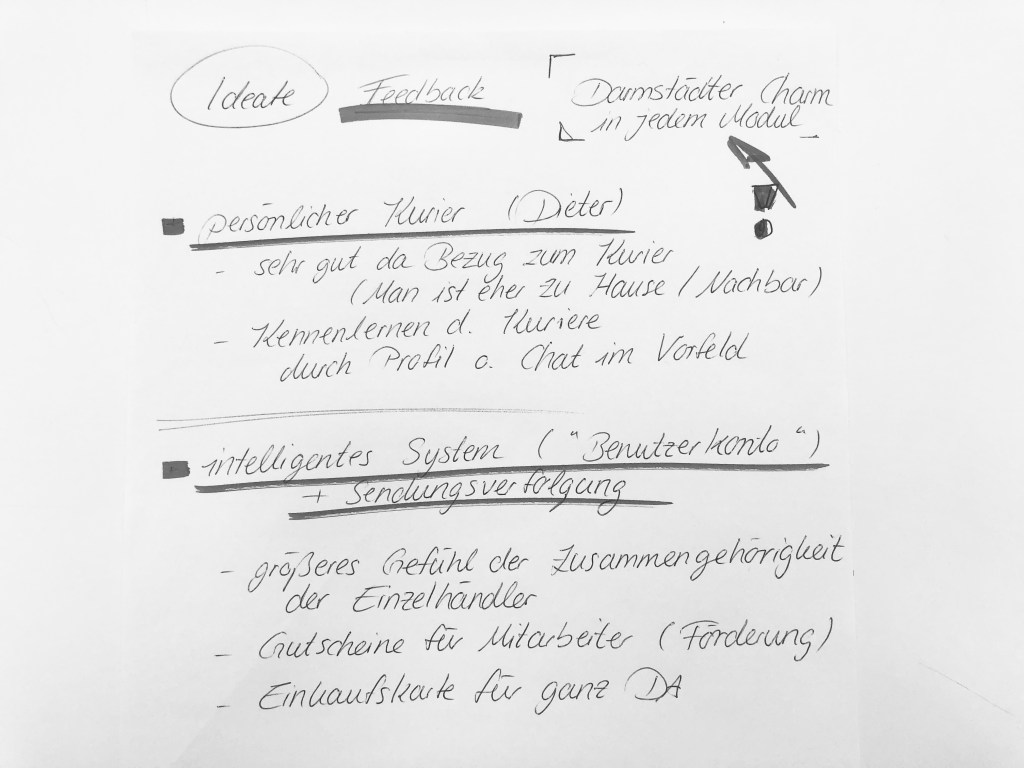 Ideate Feedback
Darmstädter Charm
in jedem Modul
!
persönlicher Kurier (Dieter)
- sehr gut da Bezug zum Kurier
(Man ist eher zu Hause / Nachbar)
- Kennenlernen d. Kuriere
durch Profil o. Chat im Vorfeld
intelligentes System ("Benutzerkonto")
+ Sendungsverfolgung
- größeres Gefühl der Zusammengehörigkeit
der Einzelhändler
- Gutscheine für Mitarbeiter (Förderung)
- Einkaufskarte für ganz DA